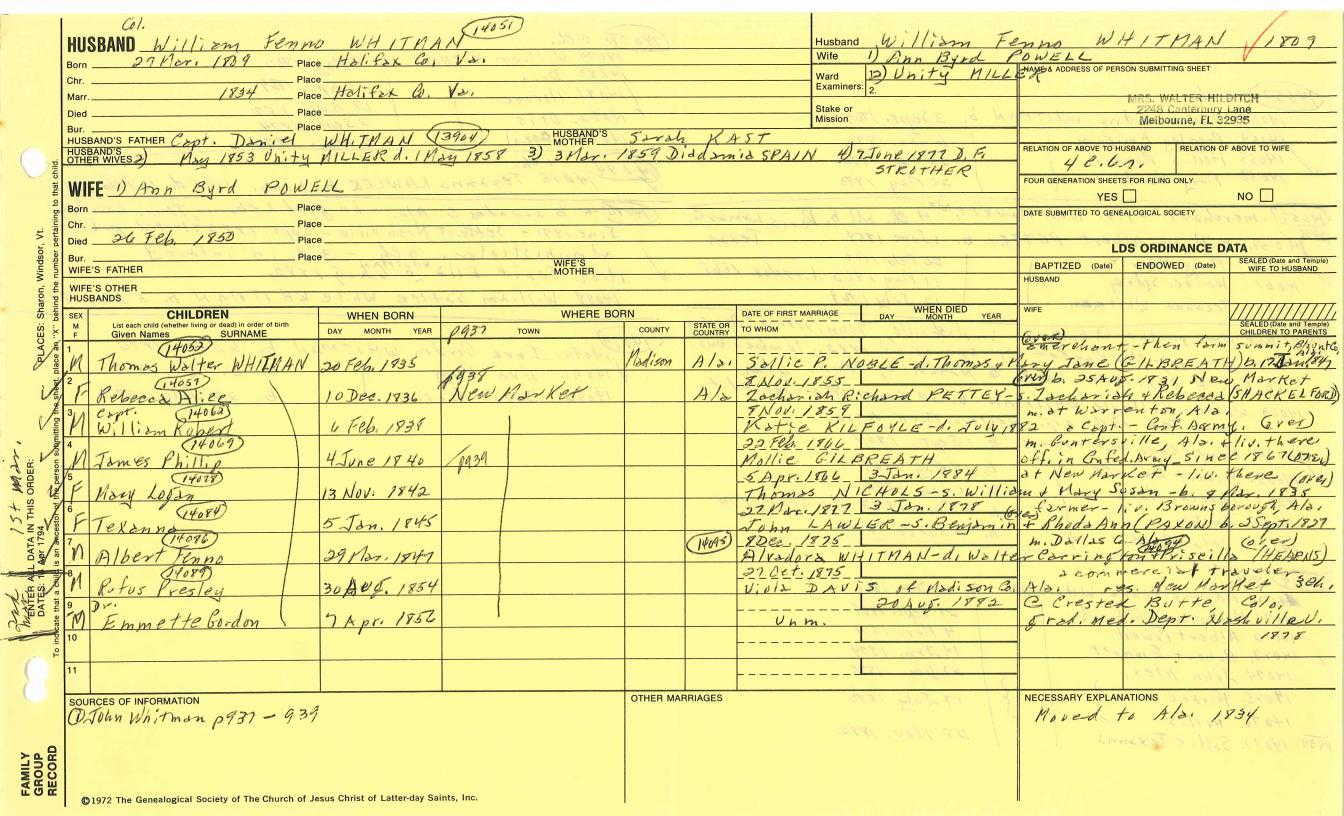 Col.
HUSBAND William Fenno WHITMAN 14051
Born 27 Mar. 1809 Place Halifax Co. Va.
Chr. Place
Marr. 1834 Place Halifax Co. Va.
Died Place
Bur. Place
HUSBAND'S FATHER Capt. Daniel WHITMAN 13904 HUSBAND'S MOTHER Sarah KAST
HUSBAND'S OTHER WIVES 2) May 1853 Unity MILLER d. 1 May 1858 3) 3 Mar. 1859 Diadamia SPAIN 4) 7 June 1877 D. F. STROTHER
Husband William Fenno WHITMAN 1809
Wife 1) Ann Byrd POWELL
Ward Examiners: 1. 2) Unity MILLER
2.
Stake or Mission
NAME & ADDRESS OF PERSON SUBMITTING SHEET
MRS. WALTER HILDITCH
2248 Canterbury Lane
Melbourne, FL 32935
RELATION OF ABOVE TO HUSBAND RELATION OF ABOVE TO WIFE
FOUR GENERATION SHEETS FOR FILING ONLY
YES NO
DATE SUBMITTED TO GENEALOGICAL SOCIETY
WIFE 1) Ann Byrd POWELL
Born Place
Chr. Place
Died 26 Feb. 1850 Place
Bur. Place
WIFE'S FATHER WIFE'S MOTHER
WIFE'S OTHER HUSBANDS
LDS ORDINANCE DATA
BAPTIZED (Date) ENDOWED (Date) SEALED (Date and Temple) WIFE TO HUSBAND
HUSBAND
WIFE
SEALED (Date and Temple) CHILDREN TO PARENTS
SEX M F CHILDREN WHEN BORN WHERE BORN DATE OF FIRST MARRIAGE WHEN DIED
List each child (whether living or dead) in order of birth
Given Names SURNAME DAY MONTH YEAR p937 TOWN COUNTY STATE OR COUNTRY TO WHOM DAY MONTH YEAR
1 14052 (over) merchant - then farm summit, Blount Co. Ala.
M Thomas Walter WHITMAN 20 Feb. 1835 Madison Ala. Sallie P. NOBLE - d. Thomas & Mary Jane (GILBREATH)
2 14057 p938 8 Nov. 1855 (over) b. 25 Aug. 1831 New Market
F Rebecca Alice 10 Dec. 1836 New Market Ala Zachariah Richard PETTEY - s. Zachariah & Rebecca (SHACKELFORD)
3 Capt. 14062 8 Nov. 1859 m. at Warrenton, Ala.
M William Robert 6 Feb. 1838 Katie KILFOYLE - d. July 1882 a Capt. - Conf. Army. (over)
4 14069 22 Feb. 1866 m. Guntersville, Ala. & liv. there
M James Phillip 4 June 1840 p939 Mollie GILBREATH off. in Confed. Army - since 1867 (over)
5 14078 5 Apr. 1866 3 Jan. 1884 at New Market - liv. there (over)
F Mary Logan 13 Nov. 1842 Thomas NICHOLS - s. William & Mary Susan - b. 8 Mar. 1835
6 14084 27 Mar. 1877 3 Jan. 1878 (over) farmer - liv. Brownsborough, Ala.
F Texanna 5 Jan. 1845 John LAWLER - s. Benjamin & Rhoda Ann (PAXON) b. 2 Sept. 1827
7 14086 14095 8 Dec. 1875 m. Dallas Co. Ala. (over)
M Albert Fenno 29 Mar. 1847 Alvadora WHITMAN - d. Walter Carrington & Priscilla (HEARNS)
8 14089 27 Oct. 1875 a commercial traveler
M Rufus Presley 30 Aug. 1854 Viola DAVIS of Madison Co. Ala. res. New Market
9 Dr. 20 Aug. 1882 @ Crested Butte, Colo.
M Emmette Gordon 7 Apr. 1856 Unm. grad. Med. Dept. Nashville U.
10 1878
11
SOURCES OF INFORMATION
① John Whitman p937 - 939
OTHER MARRIAGES
NECESSARY EXPLANATIONS
Moved to Ala. 1834
©1972 The Genealogical Society of The Church of Jesus Christ of Latter-day Saints, Inc.
FAMILY GROUP RECORD
1st mar.
2nd mar.
ENTER ALL DATA IN THIS ORDER:
DATES: 14 Apr 1794
PLACES: Sharon, Windsor, Vt.
To indicate that a child is an ancestor of the person submitting the sheet, place an "X" behind the number pertaining to that child.